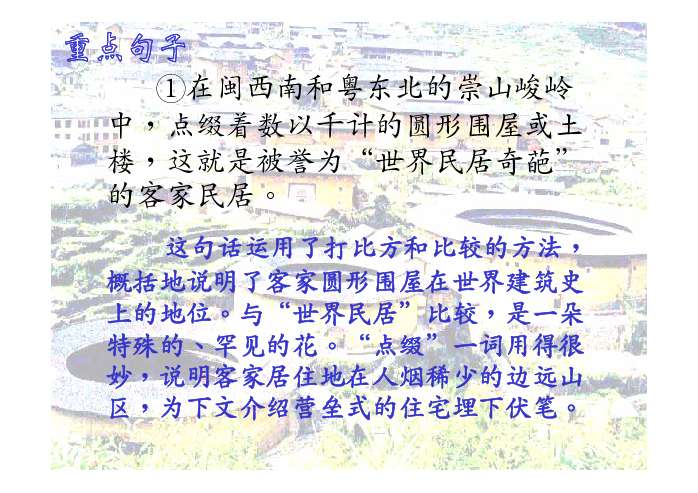 重点句子
①在闽西南和粤东北的崇山峻岭
中，点缀着数以千计的圆形围屋或土
楼，这就是被誉为“世界民居奇葩”
的客家民居。
这句话运用了打比方和比较的方法，
概括地说明了客家圆形围屋在世界建筑史
上的地位。与“世界民居”比较，是一朵
特殊的、罕见的花。“点缀”一词用得很
妙，说明客家居住地在人烟稀少的边远山
区，为下文介绍营垒式的住宅埋下伏笔。